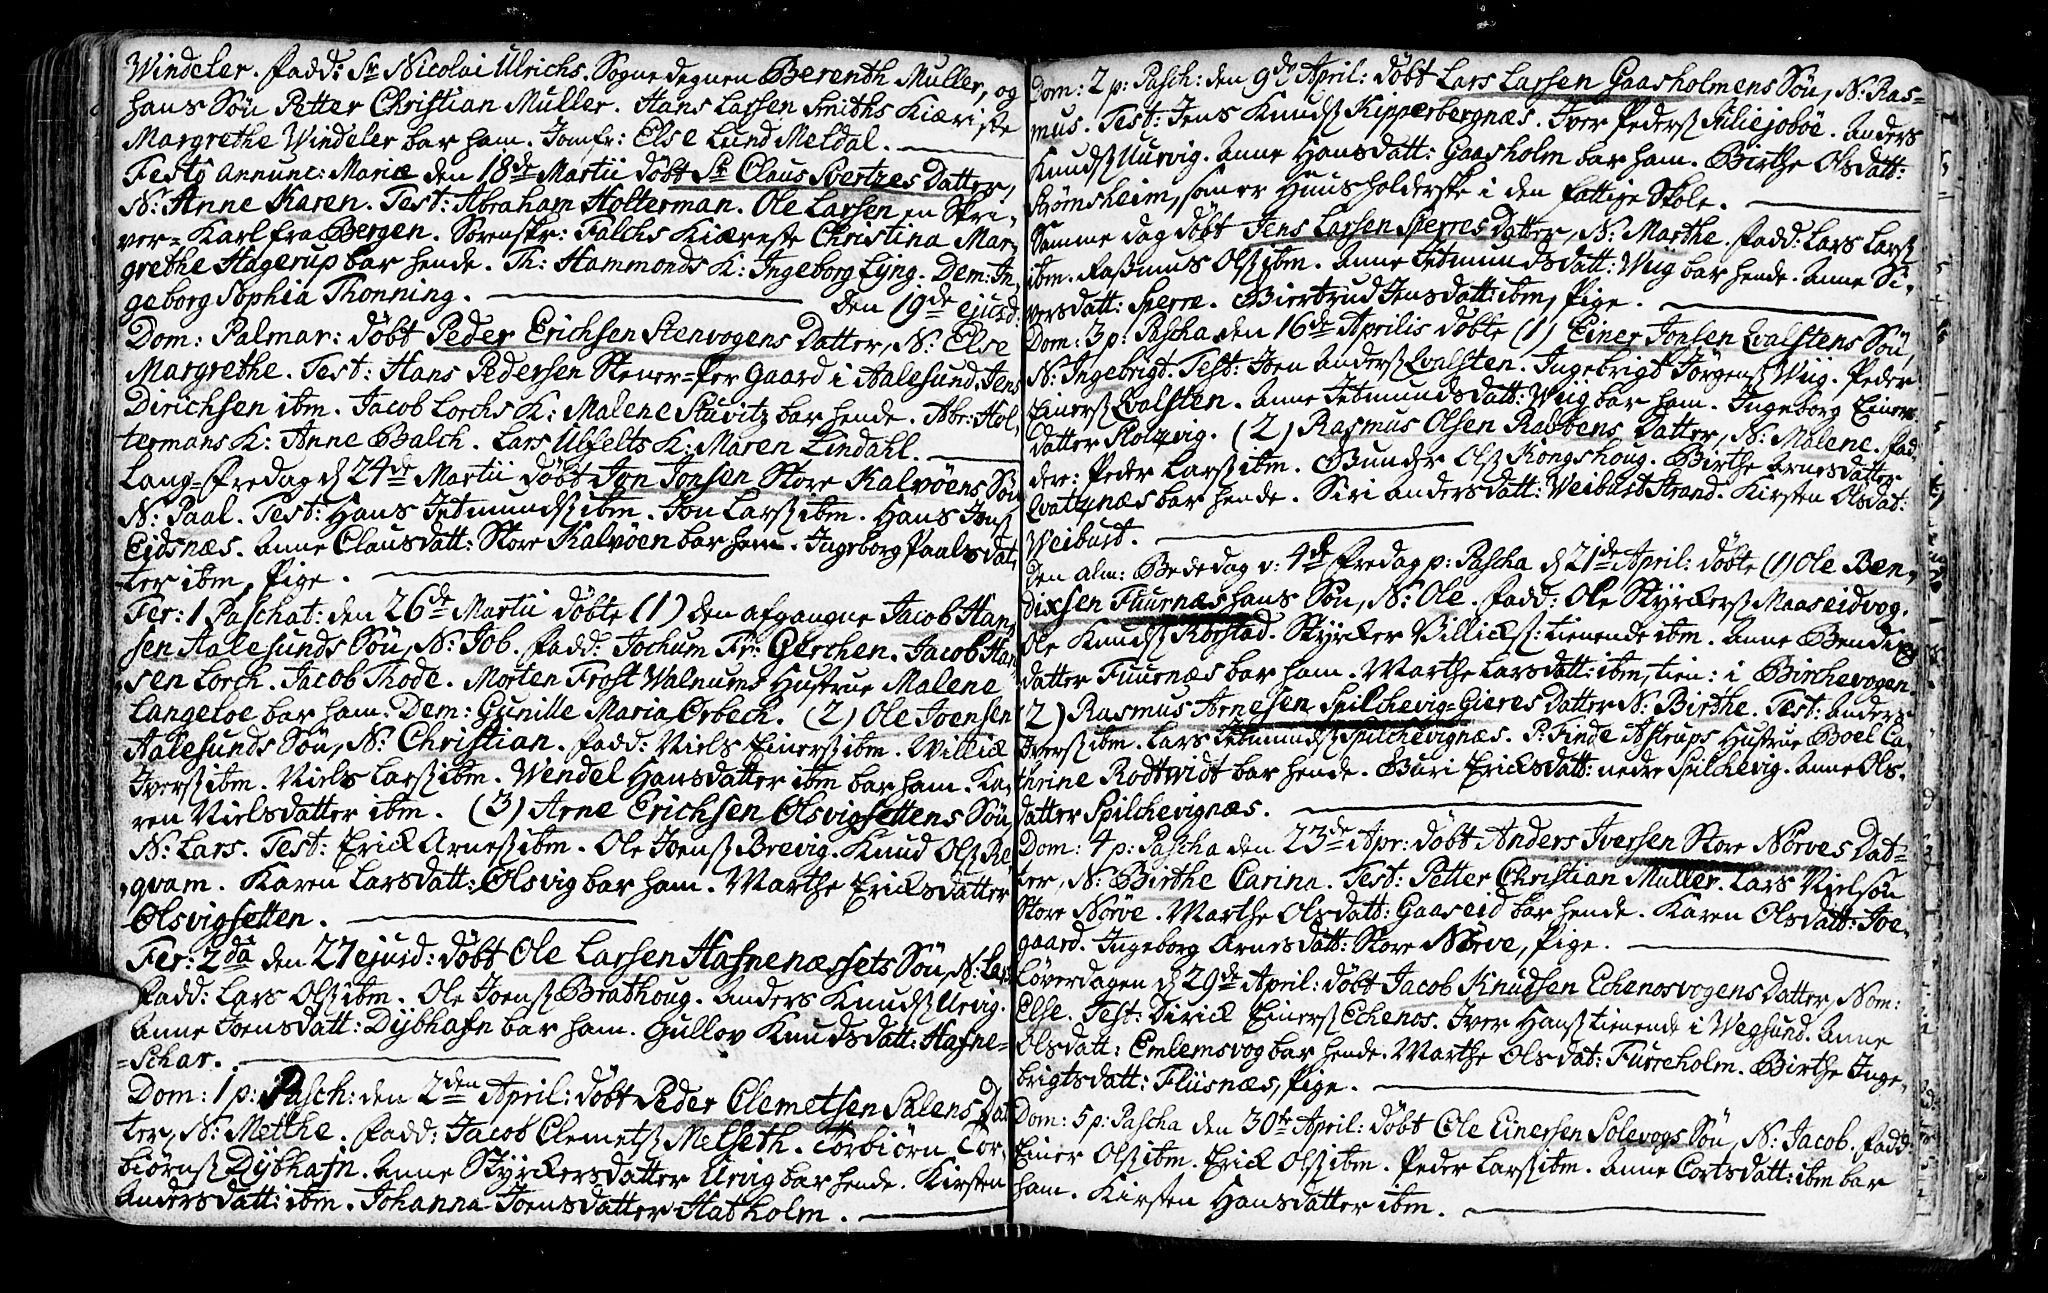 Windeler. Fadd: Sr Nicolai Ulrichs. Sognedegnen Berenth Muller, og
hans Søn Petter Christian Muller. Hans Larsen Smiths Kiæriste
Margrethe Windeler bar ham. Jomfr: Else Lund Meldal.
Festo Annunc: Mariæ den 18de Martii døbt Sr Claus Svertzes Datter,
N: Anne Karen. Test: Abraham Holterman. Ole Larsen en Skri-
ver=Karl fra Bergen. Sorenskr: Falchs Kiæreste Christina Mar-
grethe Hagerup bar hende. Th: Hammonds K: Ingeborg Lyng. Dem: In-
geborg Sophia Thonning.
den 19de ejusd:
Dom: Palmar: døbt Peder Erichsen Stenvogens Datter, N: Else
Margrethe. Test: Hans Pedersen Stener=Per Gaard i Aalesund. Jens
Dirichsen ibm. Jacob Lorchs K: Malene Stüvitz bar hende. Abr: Hol-
termans K: Anne Balch. Lars Ulfelts K: Maren Lindahl.
Lang=Fredag d 24de Martii døbt Jon Jonsen Store Kalvøens Søn
N: Paal. Test: Hans Jetmunds. ibm. Jon Lars. ibm. Hans Jons.
Eidsnæs. Anne Clausdatt: Store Kalvøen bar ham. Ingeborg Paalsdat-
ter ibm, Pige.
Fer: 1 Paschat: den 26de Martii døbte (1) den afgangne Jacob Han-
sen Aalesunds Søn, N: Job. Fadd: Jochum Fr: Gerchen. Jacob Han-
sen Lorch. Jacob Thode. Morten Frost Walnums Hustrue Malene
Langeloe bar ham. Dem: Gunille Maria Orbech. (2) Ole Joensen
Aalesunds Søn, N: Christian. Fadd: Niels Einers. ibm. Willick
Ivers. ibm. Niels Lars. ibm. Wendel Hansdatter ibm bar ham. Ka-
ren Nielsdatter ibm. (3) Arne Erichsen Olsvigsettens Søn
N: Lars. Test: Erick Arnes. ibm. Ole Joens. Brevig. Knud Ols. Re-
qvam. Karen Larsdatt: Olsvig bar ham. Marthe Ericksdatter
Olsvigsetten.
Fer: 2da den 27 ejusd: døbt Ole Larsen Hafnenæssets Søn, N: Lars
Fadd: Lars Ols. ibm. Ole Joens. Brathoug. Anders Knuds. Urvig.
Anne Joensdatt: Dybhafn bar ham. Gullov Knudsdatt: Hafne=
=Schar.
Dom: 1 p: Pasch: den 2den April: døbt Peder Clemetsen Salens Dat-
ter, N: Methe. Fadd: Jacob Clemets. Melseth. Torbiørn Tor-
biørns. Dybhafn. Anne Styrckersdatter Urvig bar hende. Kirsten
Andersdatt: ibm. Johanna Joensdatter Hatholm.
Dom: 2 p: Pasch: den 9de April: døbt Lars Larsen Gaasholmens Søn, N: Ras-
mus. Test: Jens Knuds. Kipperbergnæs. Iver Peders. Siliejoboe. Anders
Knuds. Uurvig. Anne Hansdatt: Gaasholm bar ham. Birthe Olsdatt:
Strømsheim, som er Huusholderske i den fattige Skole.
Samme dag døbt Jens Larsen Sperres Datter, N: Marthe. Fadd: Lars Lars.
ibm. Rasmus Ols. ibm. Anne Jetmundsdatt: Wiig bar hende. Anne Si-
versdatt: Sperre. Giertrud Jensdatt: ibm, Pige.
Dom: 3 p: Pascha den 16de Aprilis døbte (1) Einer Jonsen Qvalstens Søn,
N: Ingebrigt. Test: Joen Anders. Qvalsten. Ingebrigt Jørgens. Wiig. Peder
Einers. Qvalsten. Anne Jetmundsdatt: Wiig bar ham. Ingeborg Einers-
datter Stolzvig. (2) Rasmus Olsen Rabbens Datter, N: Malene. Fad-
dere: Peder Lars. ibm. Gunder Ols. Kongshoug. Birthe Arnesdatter
Qvatznæs bar hende. Siri Andersdatt: Weibust Strand. Kirsten Olsdat:
Weibust.
den alm: Bededag v: 4de Fredag p: Pascha d 21de April: døbte (1) Ole Ben-
dixsen Fuurnæs hans Søn, N: Ole. Fadd: Ole Styrckers. Maaseidvog.
Ole Knuds. Robstad. Styrcker Villicks.: tienende ibm. Anne Bendixs
datter Fuurnæs bar ham. Marthe Larsdatt: ibm, tien: i Birchevogen.
(2) Rasmus Arnesen Spilchevig=Gieres Datter N: Birthe. Test: Anders
Ivers. ibm. Lars Jetmunds. Spilchevignæs. P: Finde Astrups Hustrue Boel Ca-
thrine Rodtvidt bar hende. Buri Ericksdatt: nedre Spilchevig. Anne Ols-
datter Spilchevignæs.
Dom: 4 p: Pascha den 23de Apr: døbt Anders Iversen Store Nørves Dat-
ter, N: Birthe Carina. Test: Petter Christian Muller. Lars Nielsøn
Store Nørve. Marthe Olsdatt: Gaaseid bar hende. Karen Olsdatt: Joe-
gaard. Ingeborg Arnesdatt: Store Nørve, Pige.
Løverdagen d 29de April: døbt Jacob Knudsen Echenosvogens Datter, Nom:
Else. Test: Dirick Einers. Echenos. Iver Hans. tienende i Wegsund. Anne
Olsdatt: Emlemsvog bar hende. Marthe Olsdat: Furreholm. Birthe Inge-
brigtsdatt: Fliisnæs, Pige.
Dom: 5 p: Pascha den 30te April: døbt Ole Einersen Solevogs Søn, N: Jacob. Fadd:
Einer Ols. ibm. Erick Ols. ibm. Peder Lars. ibm. Anne Cortsdatt: ibm bar
ham. Kirsten Hansdatter ibm.